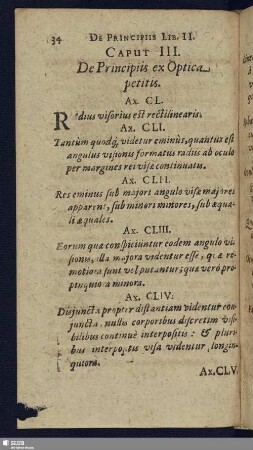 34 DE PRINCIPIIS LIB. II.
CAPUT III.
De Principiis ex Optica
petitis.
AX. CL.
Radius visorius est rectilinearis.
AX. CLI.
Tantùm quodq; videtur eminùs, quantus est
angulus visionis formatus radiis ab oculo
per margines rei visæ continuatis.
AX. CLII.
Res eminus sub majori angulo visæ majores
apparent, sub minori minores, sub æqua-
li æquales.
AX. CLIII.
Eorum quæ conspiciuntur eodem angulo vi-
sionis, illa majora videntur esse, quæ re-
motiora sunt vel putantur; quæ verò pro-
pinquiora minora.
AX. CLIV.
Disjuncta propter distantiam videntur con-
juncta, nullis corporibus discretim visi-
bilibus continuè interpositis: & pluri-
bus interpositis visa videntur longin-
quiora.
AX. CLV.